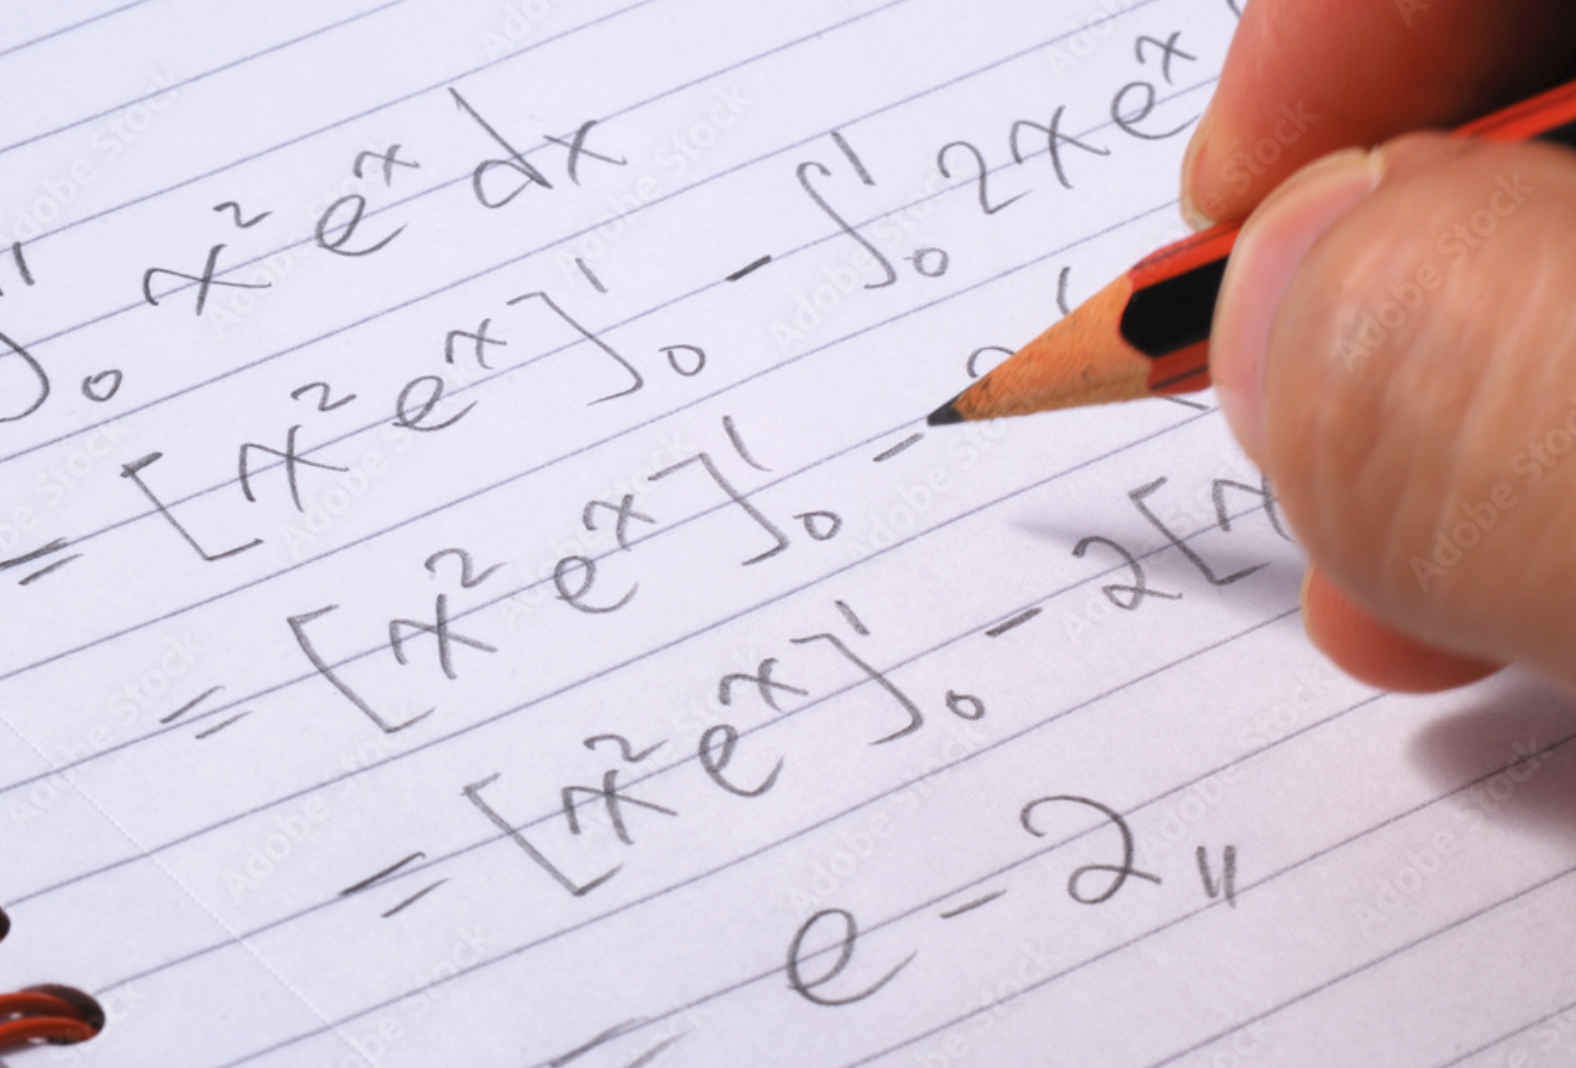 ∫₀¹ x² eˣ dx
= [x² eˣ]₀¹ - ∫₀¹ 2x eˣ
= [x² eˣ]₀¹ -
= [x² eˣ]₀¹ - 2[x
= e - 2 //
Adobe Stock